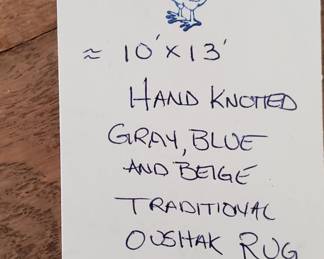 ≈ 10' x 13'
HAND KNOTTED
GRAY, BLUE
AND BEIGE
TRADITIONAL
OUSHAK RUG